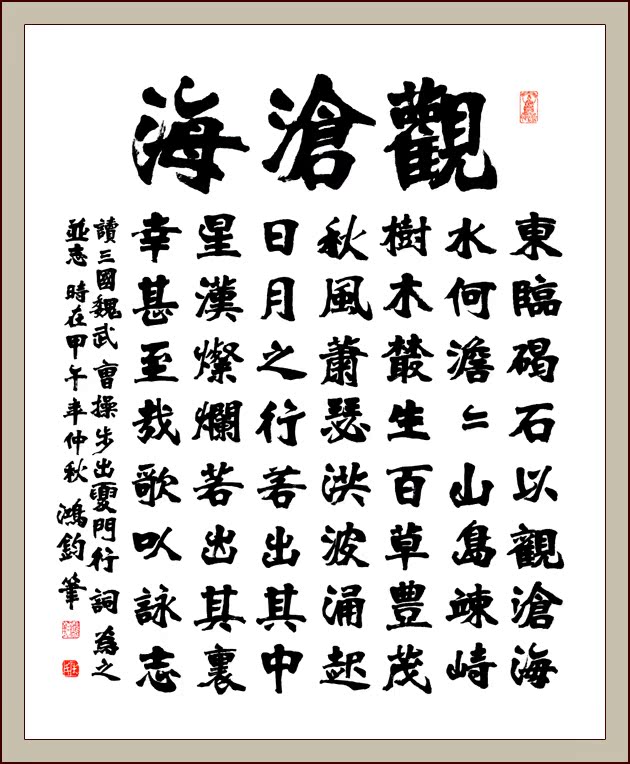 觀滄海
東臨碣石以觀滄海
水何澹〻山島竦峙
樹木叢生百草豐茂
秋風蕭瑟洪波涌起
日月之行若出其中
星漢燦爛若出其裏
幸甚至哉歌以詠志
讀三國魏武曹操步出夏門行詞為之
並志時在甲午年仲秋鴻鈞筆